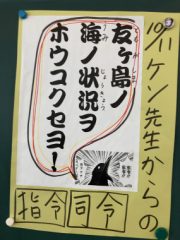 10/11 ケン先生からの
友ヶ島ノ
海ノ状況ヲ
ホウコクセヨ!
指令司令